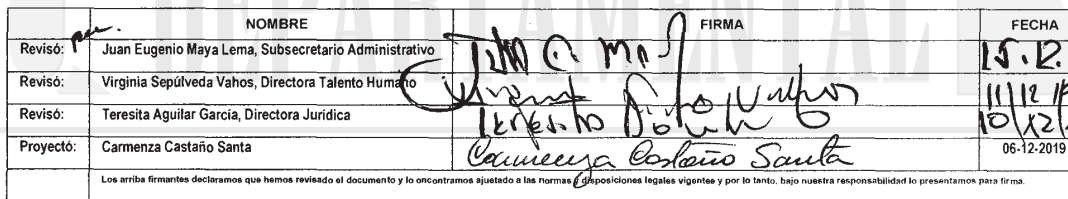 DEPARTAMENTAL
NOMBRE FIRMA FECHA
Revisó: Juan Eugenio Maya Lema, Subsecretario Administrativo 15.12.
Revisó: Virginia Sepúlveda Vahos, Directora Talento Humano 11/12
Revisó: Teresita Aguilar García, Directora Jurídica 10/12/
Proyectó: Carmenza Castaño Santa Carmenza Castaño Santa 06-12-2019
Los arriba firmantes declaramos que hemos revisado el documento y lo oncontramos ajustado a las normas y disposiciones legales vigentes y por lo tanto, bajo nuestra responsabilidad lo presentamos para firma.